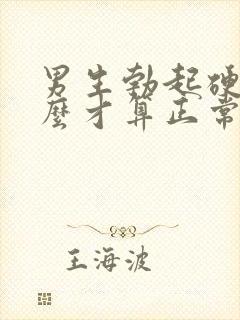 男生勃起硬
麼才算正常
王海波